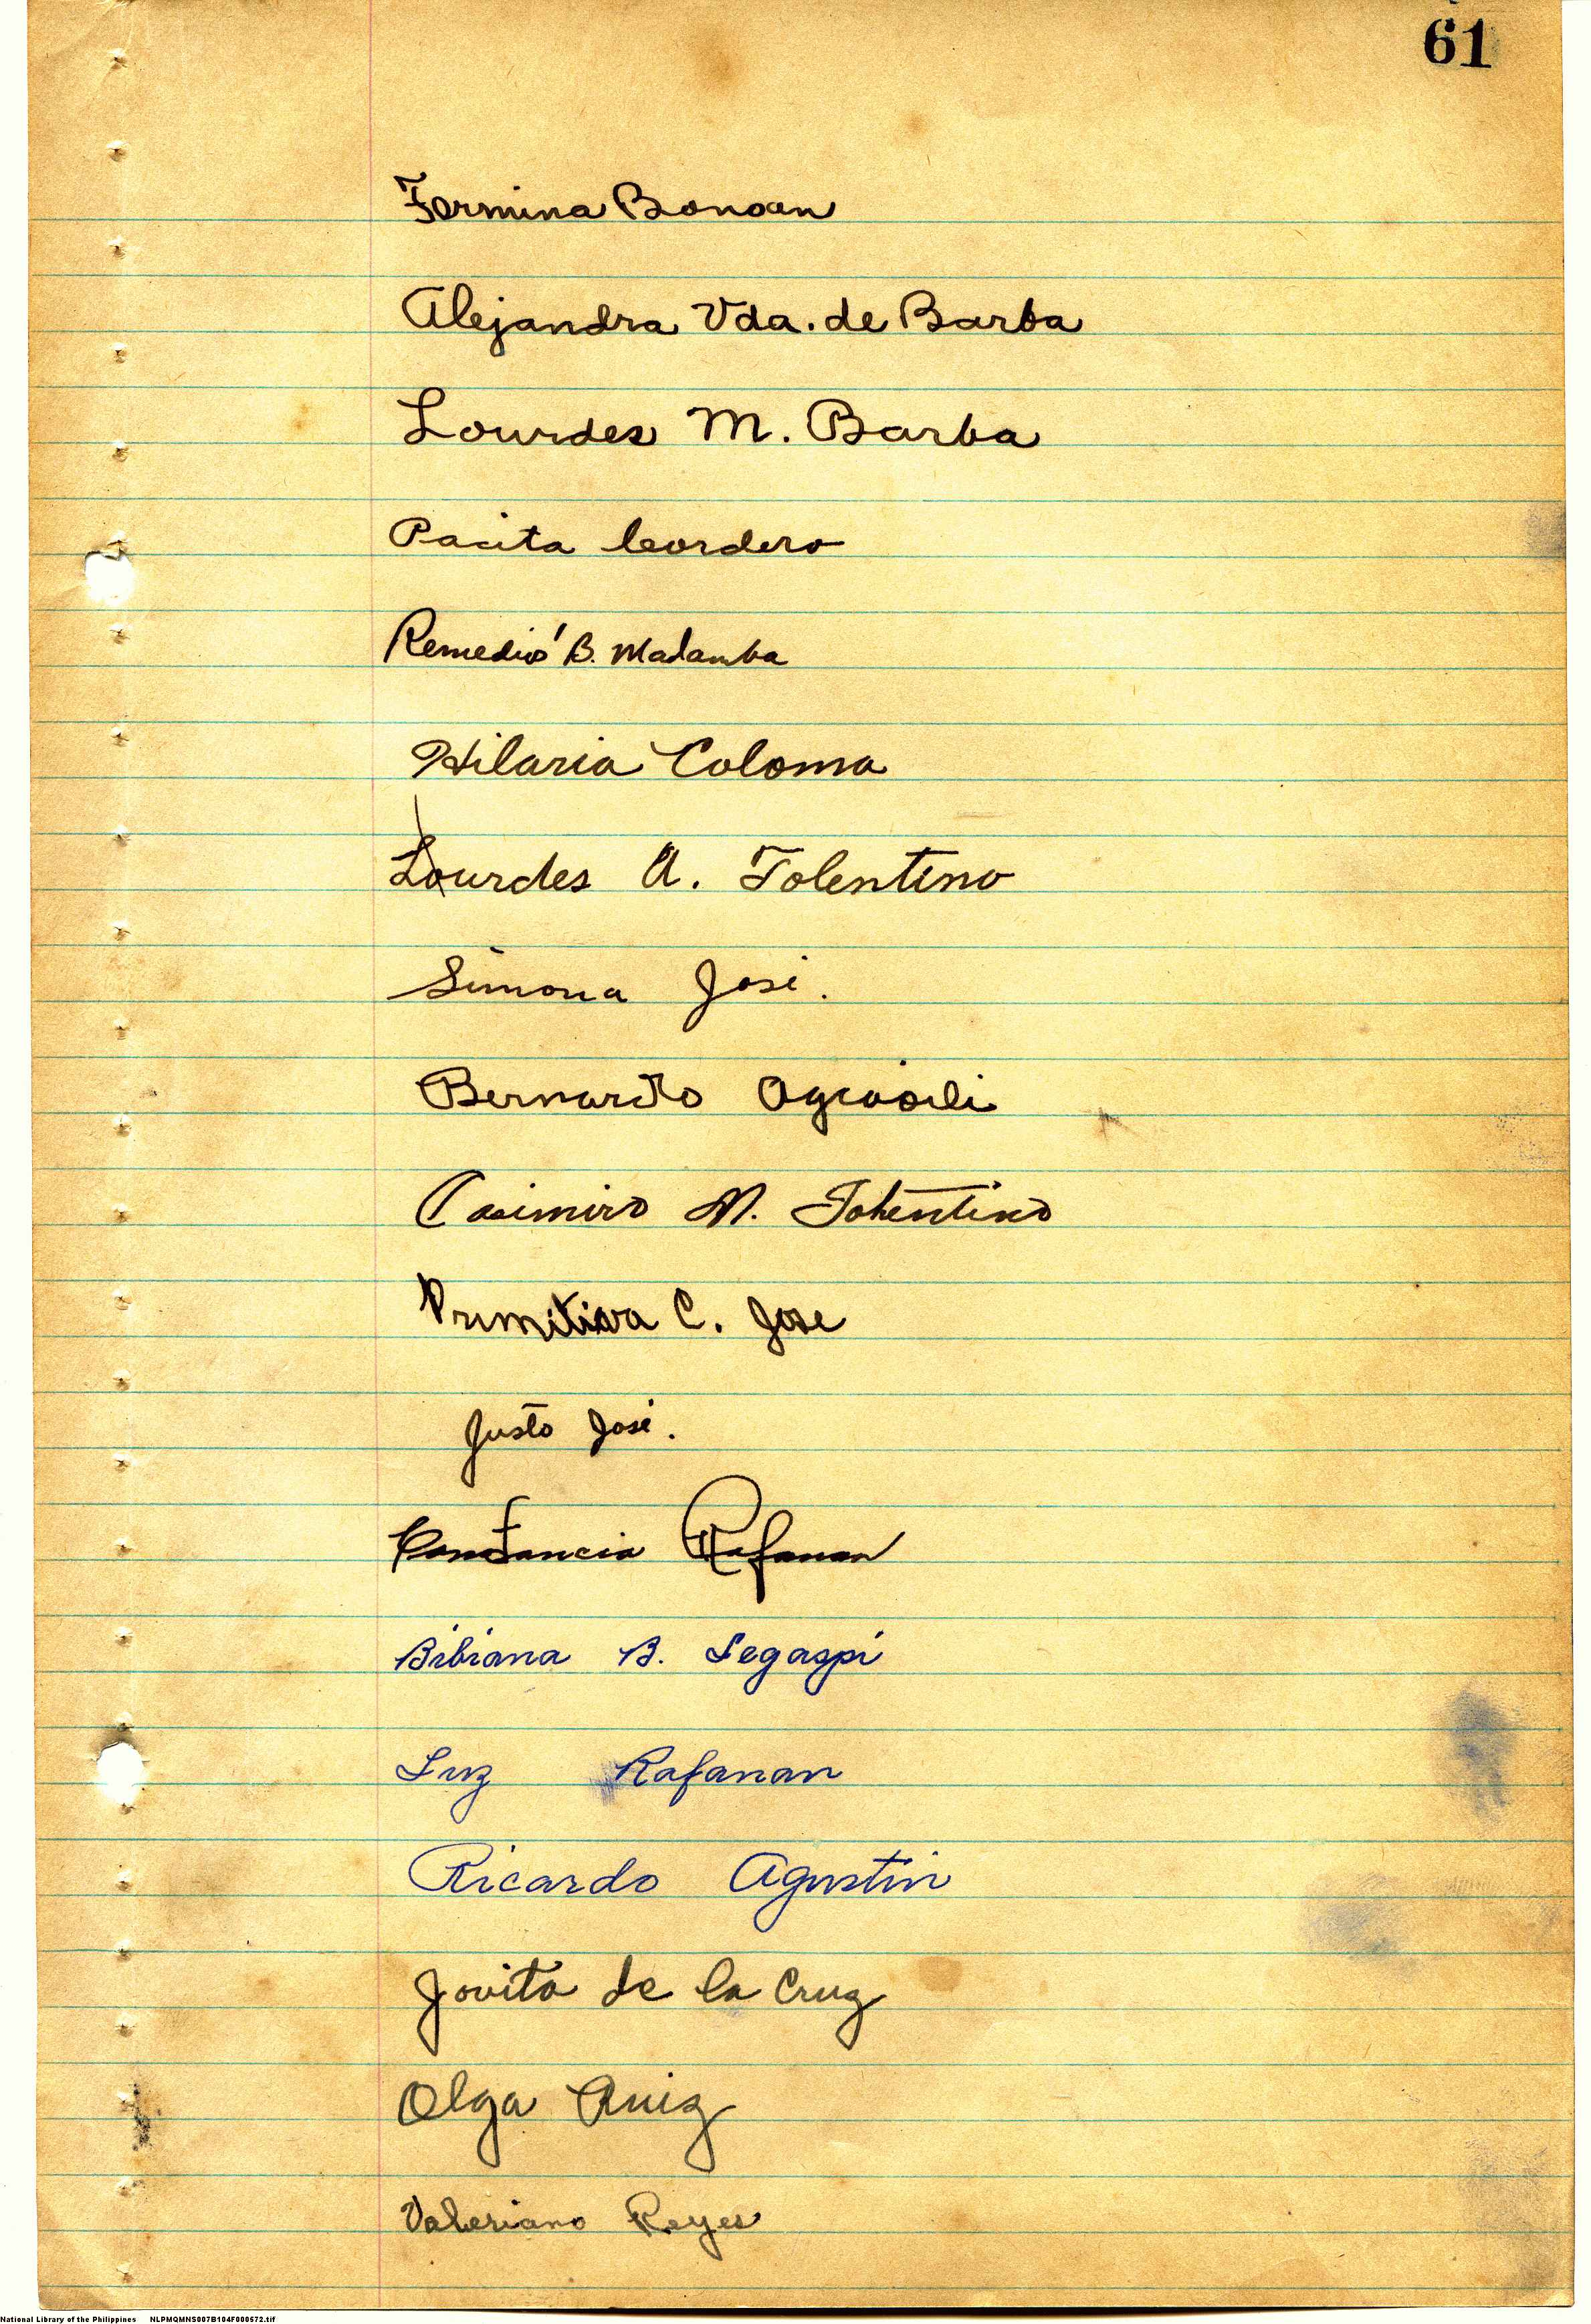 61
Fermina Bonoan
Alejandra Vda. de Barba
Lourdes M. Barba
Pacita Cordero
Remedios B. Madamba
Hilaria Coloma
Lourdes A. Tolentino
Simona José.
Bernardo Agcaoili
Casimiro M. Tolentino
Primitiva C. Jose
Justo José.
Constancia Rafanan
Bibiana B. Legaspi
Luz Rafanan
Ricardo Agustin
Jovita de la Cruz
Olga Ruiz
Valeriano Reyes
National Library of the Philippines NLPMQMNS007B104F000572.tif